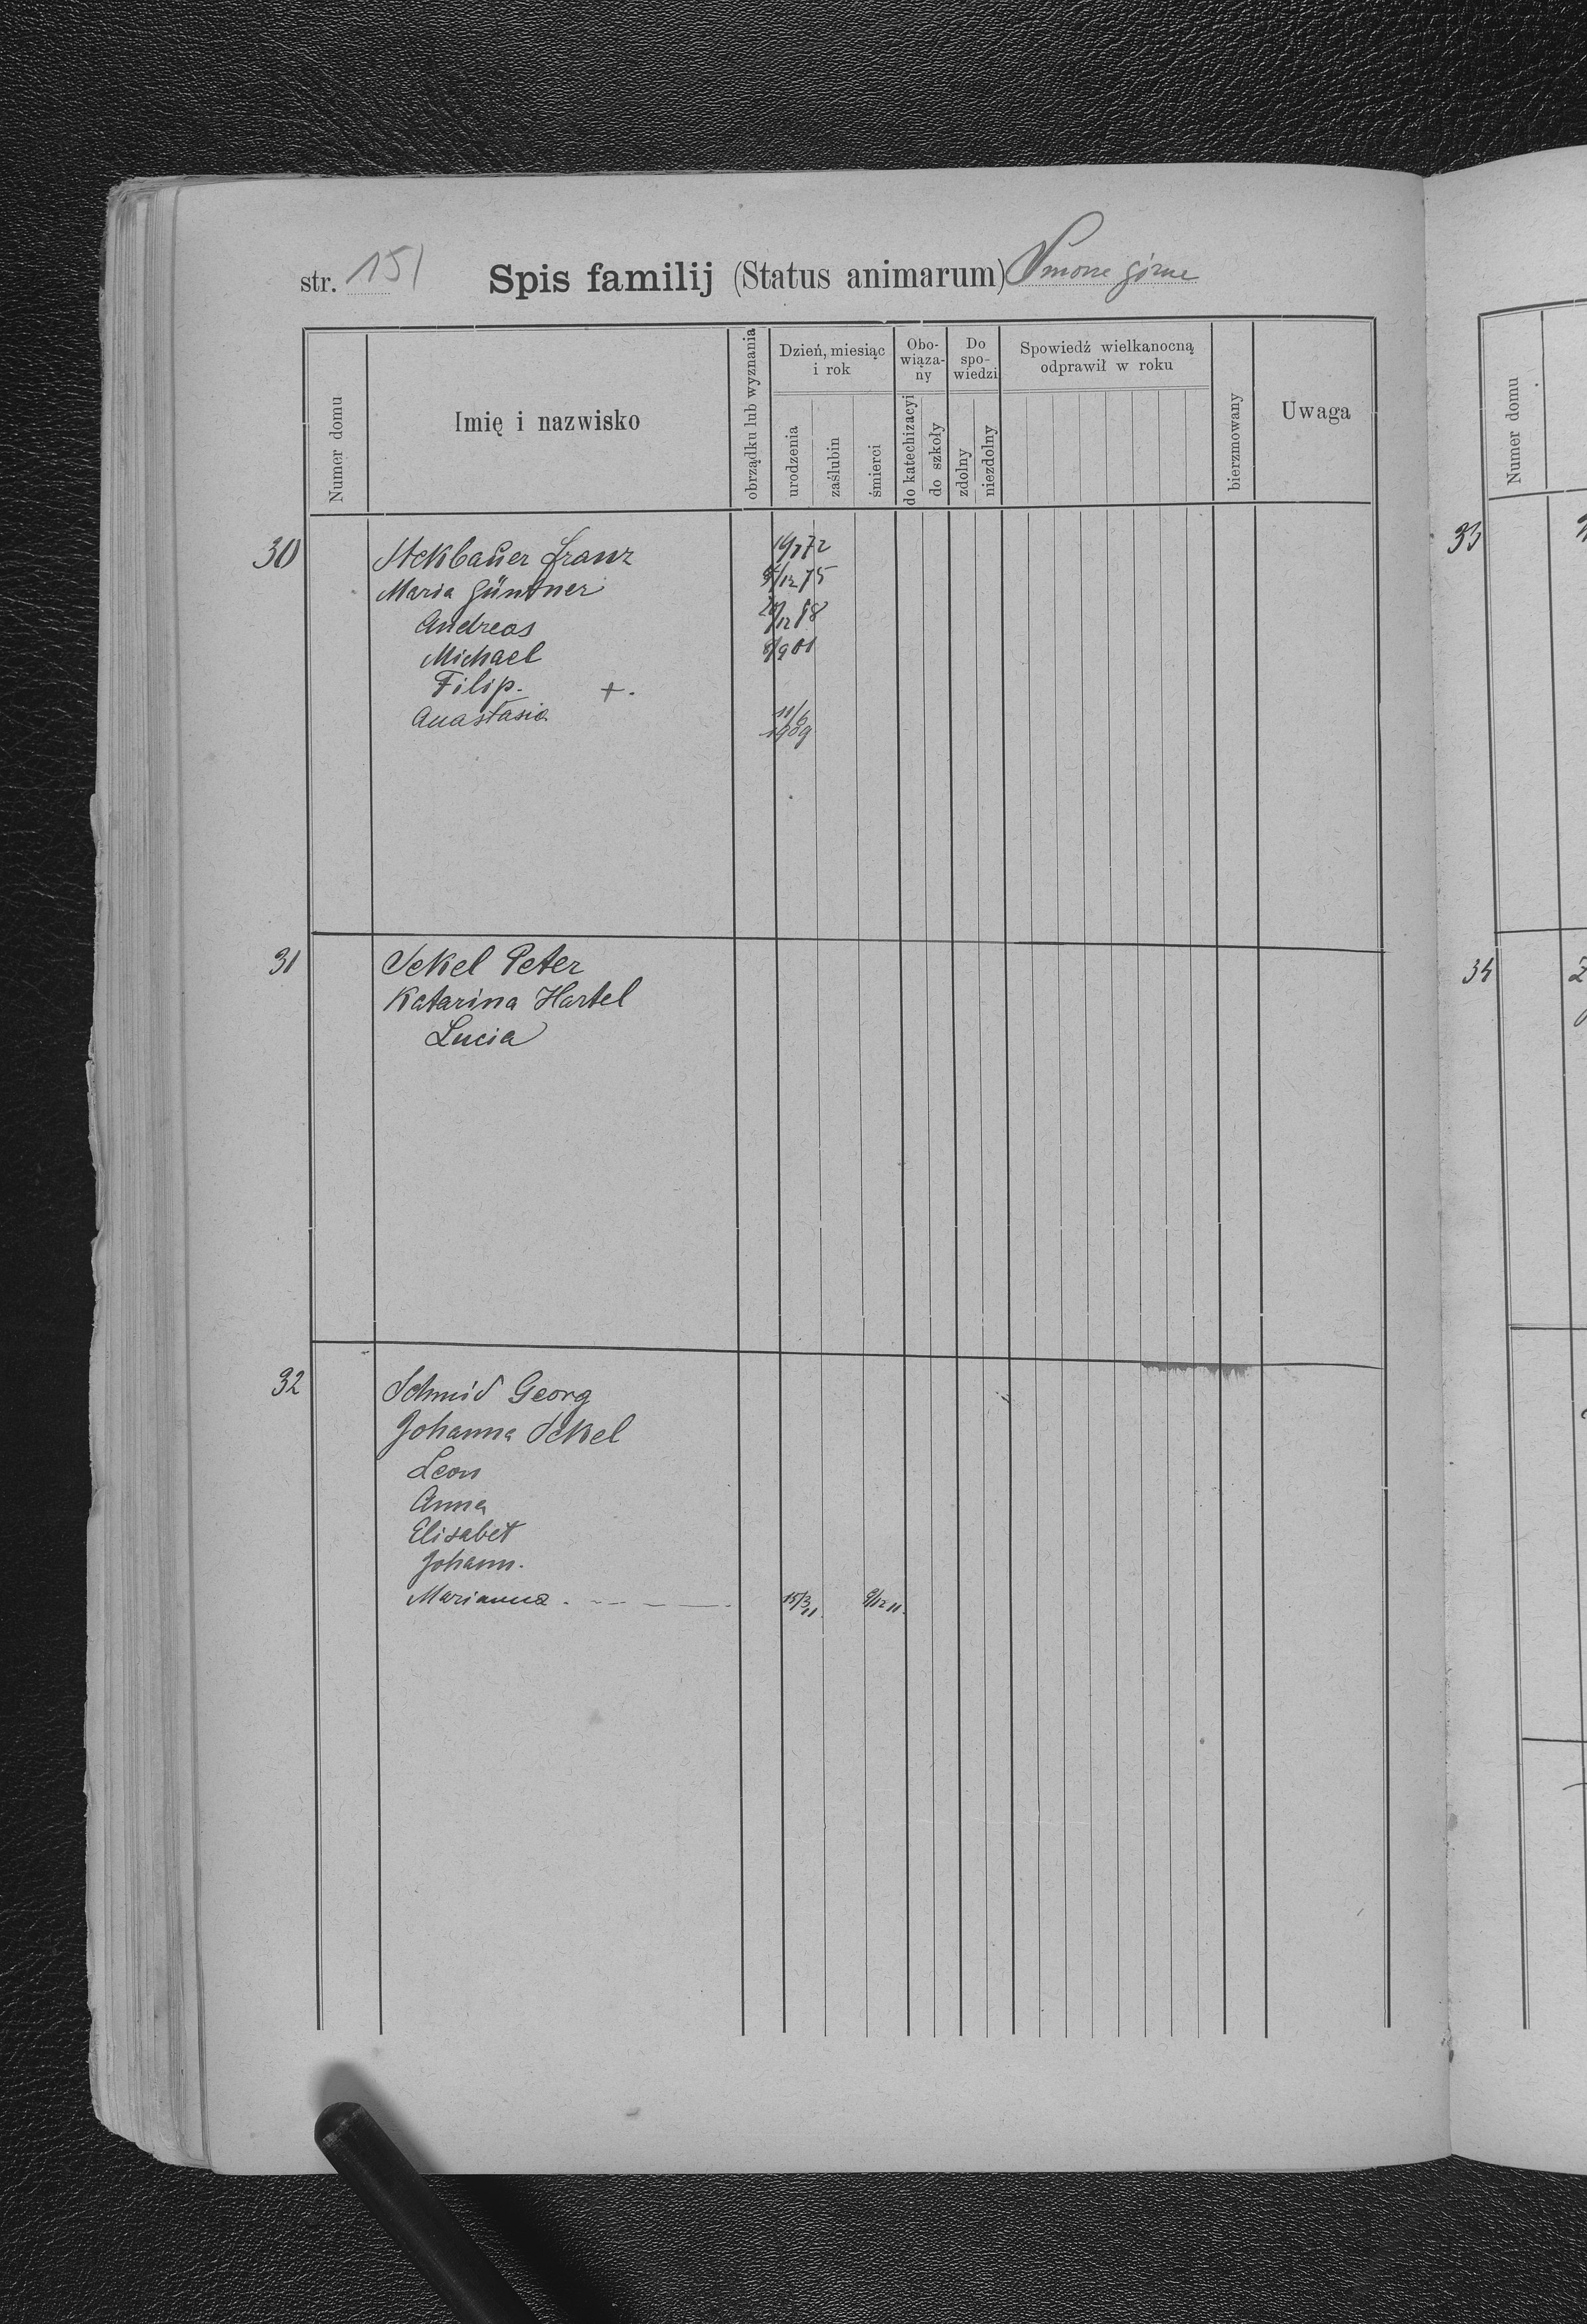 str. 151 Spis familij (Status animarum) Smorze górne
Numer domu
Imię i nazwisko
obrządku lub wyznania
Dzień, miesiąc i rok
urodzenia
zaślubin
śmierci
Obo-
wiąza-
ny
do katechizacyi
do szkoły
Do
spo-
wiedzi
zdolny
niezdolny
Spowiedź wielkanocną
odprawił w roku
bierzmowany
Uwaga
30 Stekbauer Franz 19/7 72
Maria Güntner 5/12 75
Andreas
Michael 8/9 01
Filip. +.
Anastasia 11/6
1909
31 Sekel Peter
Katarina Hartel
Lucia
32 Schmid Georg
Johanna Sekel
Leon
Anna
Elisabet
Johann.
Marianna . - - - - 15/3 11. 9/12 11.
Numer domu
33
34